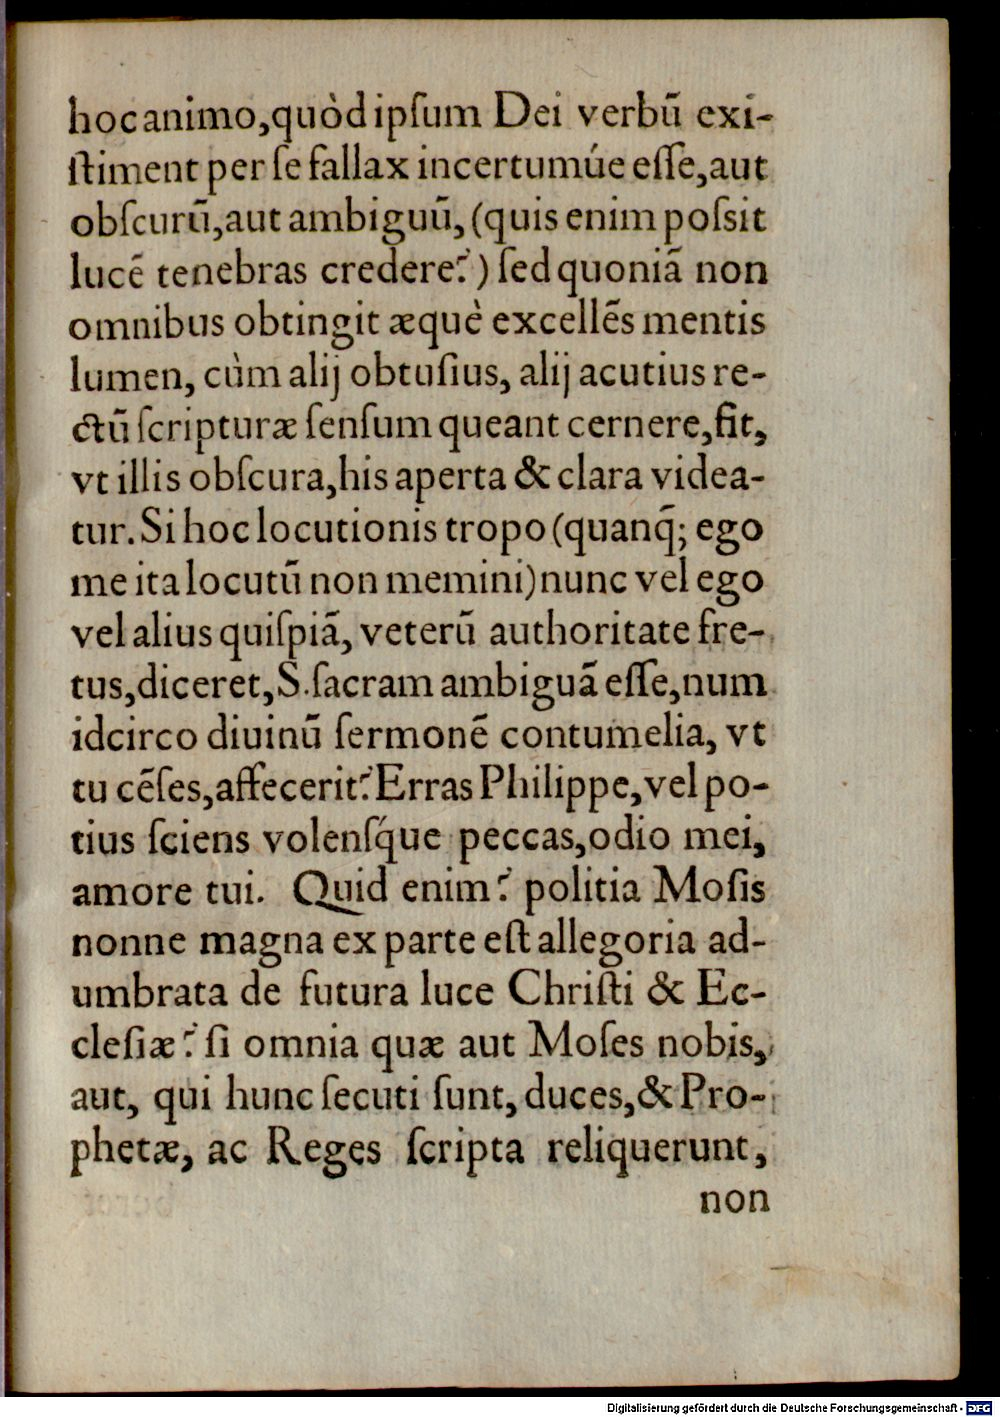 hoc animo, quòd ipſum Dei verbū exi-
ſtiment per ſe fallax incertumúe eſſe, aut
obſcurū, aut ambiguū, (quis enim poſsit
lucē tenebras credere?) ſed quoniā non
omnibus obtingit æquè excellēs mentis
lumen, cùm alij obtuſius, alij acutius re-
ctū ſcripturæ ſenſum queant cernere, fit,
vt illis obſcura, his aperta & clara videa-
tur. Si hoc locutionis tropo (quanq̄; ego
me ita locutū non memini) nunc vel ego
vel alius quiſpiā, veterū authoritate fre-
tus, diceret, S. ſacram ambiguā eſſe, num
idcirco diuinū ſermonē contumelia, vt
tu cēſes, affecerit? Erras Philippe, vel po-
tius ſciens volenſq́ue peccas, odio mei,
amore tui. Quid enim? politia Moſis
nonne magna ex parte eſt allegoria ad-
umbrata de futura luce Chriſti & Ec-
cleſiæ? ſi omnia quæ aut Moſes nobis,
aut, qui hunc ſecuti ſunt, duces, & Pro-
phetæ, ac Reges ſcripta reliquerunt,
non
Digitalisierung gefördert durch die Deutsche Forschungsgemeinschaft - DFG